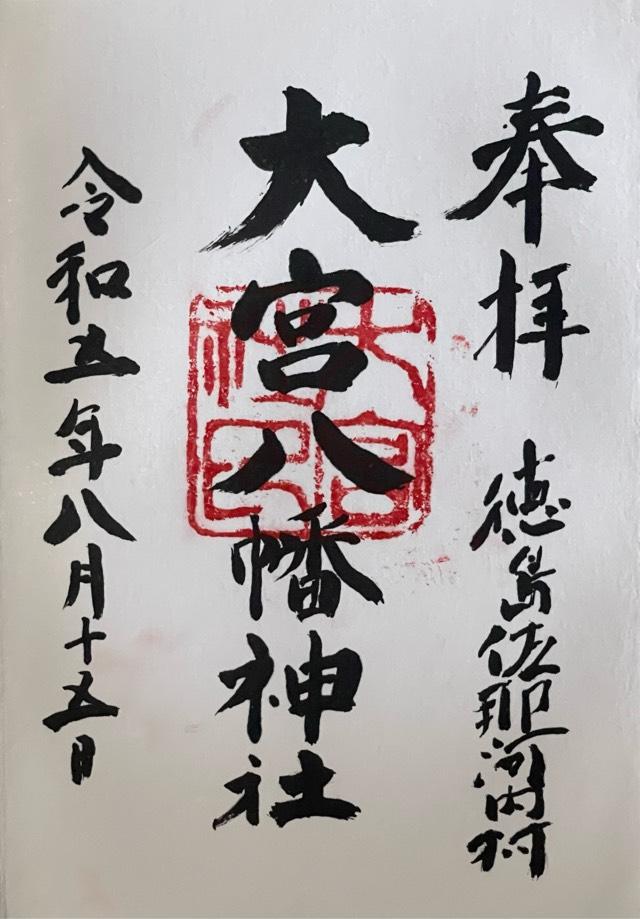 奉拝
徳島佐那河内村
大宮八幡神社
大宮神印
令和五年八月十五日